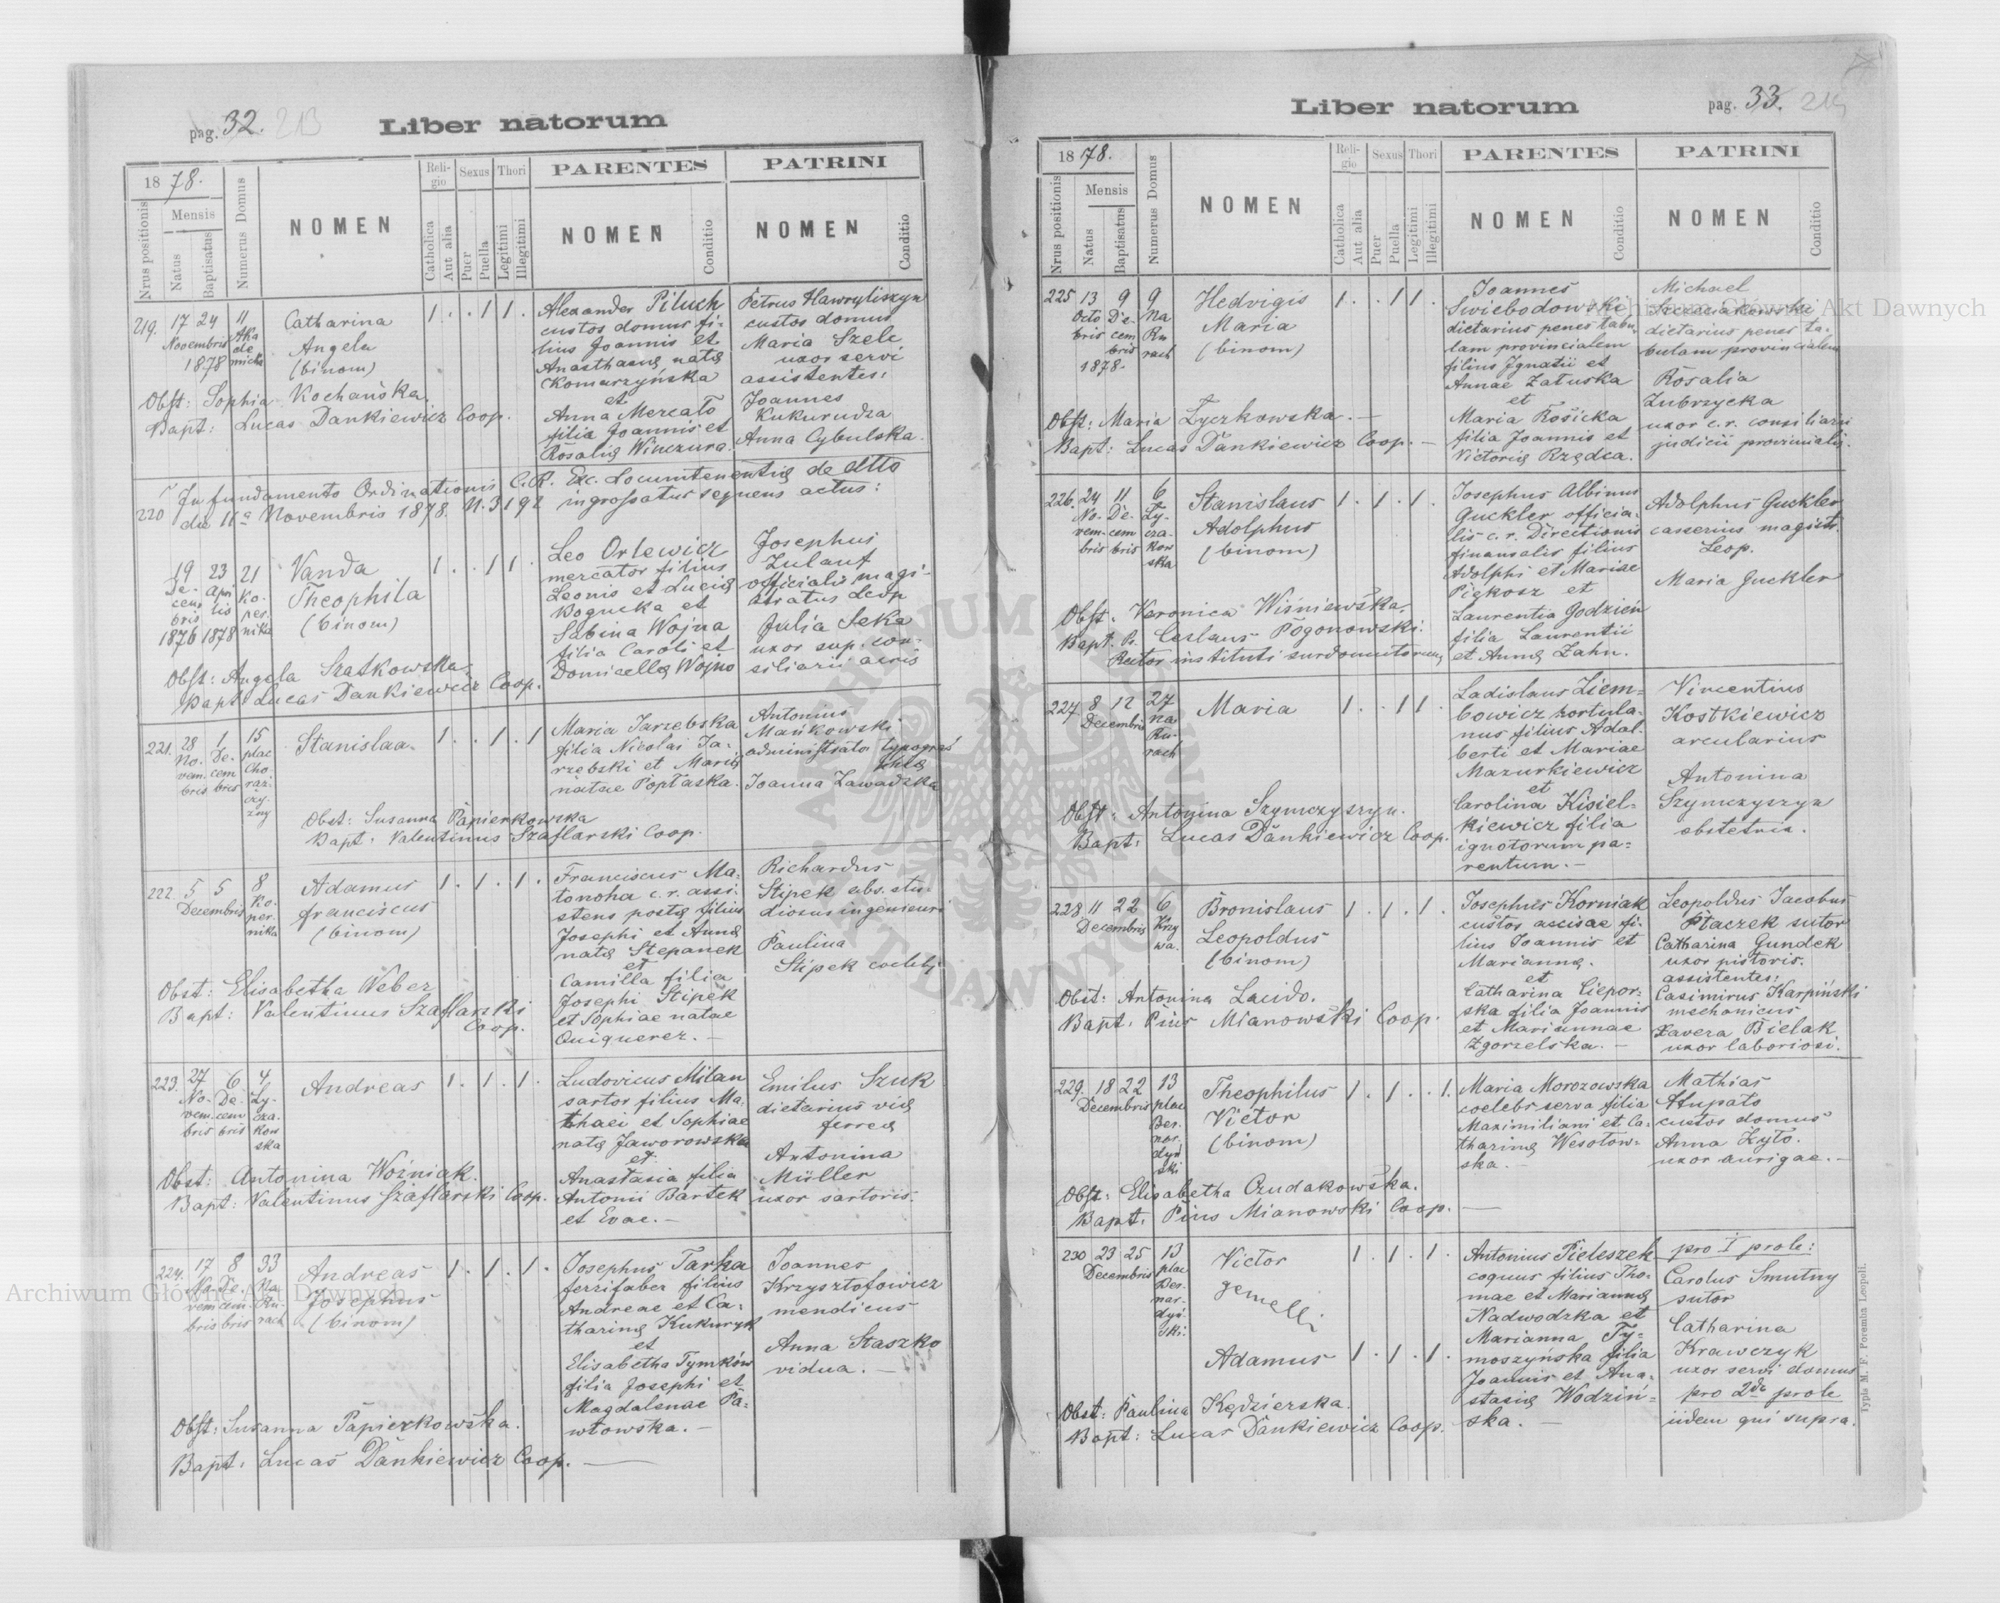 pag. 32. 213
Liber natorum
18 78.
Nrus positionis
Mensis
Natus
Baptisatus
Numerus Domus
NOMEN
Religio
Catholica
Aut alia
Sexus
Puer
Puella
Thori
Legitimi
Illegitimi
PARENTES
NOMEN
Conditio
PATRINI
NOMEN
Conditio
219. 17 24 11
Novembris
1878
Aka
de
micka
Catharina
Angela
(binom)
1 . . 1 1 .
Alexander Piluch
custos domus fi-
lius Joannis et
Anasthasię natę
Komarzyńska
et
Anna Mercało
filia Joannis et
Rosalię Winczura.
Petrus Hawryliszyn
custos domus
Maria Szele
uxor servi
assistentes:
Joannes
Kukurudza
Anna Cybulska.
Obst: Sophia Kochańska.
Bapt: Lucas Dankiewicz Coop.
220
In fundamento Ordinationis C.R. Exc. Locumtenentię de dtto
die 11a Novembris 1878. N. 3192 ingrossatur sequens actus:
19 23 21
De-
cem
bris
1876
Apri
lis
1878
Ko-
per-
nika
Vanda
Theophila
(binom)
1 . . 1 1 .
Leo Orlewicz
mercator filius
Leonis et Lucię
Bogucka et
Sabina Wojna
filia Caroli et
Domicellę Wojno
Josephus
Zulauf
officialis magi-
stratus Leop
Julia Seka
uxor sup. con-
siliarii aeris
Obst: Angela Szatkowska
Bapt: Lucas Dankiewicz Coop.
221. 28 1 15
No-
vem
bris
De-
cem
bris
plac
Cho
rąż-
czy-
zny
Stanislaa.
1 . . 1 . 1
Maria Jarzębska
filia Nicolai Ja-
rzębski et Marię
natae Popłaska.
Antonius
Mańkowski
administrator typogra-
phię
Joanna Zawadzka
Obst: Susanna Papierkowska
Bapt: Valentinus Szaflarski Coop.
222. 5 5 8
Decembris
Ko-
per-
nika
Adamus
Franciscus
(binom)
1 . 1 . 1 .
Franciscus Ma-
tonoha c.r. assi-
stens postę filius
Josephi et Annę
natę Stepanek
et
Camilla filia
Josephi Stipek
et Sophiae natae
Quiquerez. —
Richardus
Stipek abs. stu-
diosus ingenieuri
Paulina
Stipek coelebs
Obst: Elisabetha Weber
Bapt: Valentinus Szaflarski
Coop.
223. 27 6 4
No-
vem
bris
De-
cem
bris
Ły-
cza-
kow
ska
Andreas
1 . 1 . 1 .
Ludovicus Milan
sartor filius Ma-
thaei et Sophiae
natę Jaworowska
et
Anastasia filia
Antonii Bartek
et Evae. —
Emilus Szuk
dietarius vię
ferreę
Antonina
Müller
uxor sartoris.
Obst: Antonina Woźniak.
Bapt: Valentinus Szaflarski Coop.
224. 17 8 33
No-
vem
bris
De-
cem-
bris
Na
Ru-
rach
Andreas
Josephus
(binom)
1 . 1 . 1 .
Josephus Tarka
ferrifaber filius
Andreae et Ca-
tharinę Kukuryk
et
Elisabetha Tymków
filia Josephi et
Magdalenae Pa-
włowska. —
Joannes
Krzysztofowicz
mendicus
Anna Staszko
vidua. —
Obst: Susanna Papierkowska.
Bapt: Lucas Dankiewicz Coop. —
pag. 33.
Liber natorum
18 78.
Nrus positionis
Mensis
Natus
Baptisatus
Numerus Domus
NOMEN
Religio
Catholica
Aut alia
Sexus
Puer
Puella
Thori
Legitimi
Illegitimi
PARENTES
NOMEN
Conditio
PATRINI
NOMEN
Conditio
225 13 9 9
Octo
bris
De-
cem
bris
1878.
Na
Ru
rach
Hedvigis
Maria
(binom)
1 . . 1 1 .
Joannes
Swiebodowski
dietarius penes tabu-
lam provincialem
filius Ignatii et
Annae Załuska
et
Maria Rosicka
filia Joannis et
Victorię Rządca.
Michael
dietarius penes ta-
bulam provincialem
Rosalia
Zubrzycka
uxor c.r. consiliarii
judicii provincialis.
Obst: Maria Łyczkowska. —
Bapt: Lucas Dankiewicz Coop. —
226. 24 11 6
No-
vem-
bris
De-
cem
bris
Ły-
cza-
kow
ska
Stanislaus
Adolphus
(binom)
1 . 1 . 1 .
Josephus Albinus
Guckler officia-
lis c.r. Directionis
finansalis filius
Adolphi et Mariae
Piękosz et
Laurentia Godzień
filia Laurentii
et Annę Zahn.
Adolphus Guckler
casserius magistr.
Leop.
Maria Guckler
Obst: Veronica Wiśniewska.
Bapt. Pr. Ceslaus Pogonowski.
Rector instituti surdomutorum
227 8 12 27
Decembris
Na
Ru-
rach
Maria
1 . . 1 1 .
Ladislaus Ziem-
bowicz hortula-
nus filius Adal-
berti et Mariae
Mazurkiewicz
et
Carolina Kisiel-
kiewicz filia
ignotorum pa-
rentum. —
Vincentius
Kostkiewicz
arcularius
Antonina
Szymczyszyn
obstetrix.
Obst: Antonina Szymczyszyn.
Bapt: Lucas Dankiewicz Coop.
228 11 22 6
Decembris
Krzy
wa.
Bronislaus
Leopoldus
(binom)
1 . 1 . 1 .
Josephus Korniak
custos accisae fi-
lius Joannis et
Mariannę.
et
Catharina Ciepor-
ska filia Joannis
et Mariannae
Zgorzelska. —
Leopoldus Jacobus
Ptaczek sutor
Catharina Gundek
uxor pistoris.
assistentes:
Casimirus Karpiński
mechanicus
Xavera Bielak
uxor laboriosi.
Obst: Antonina Lacido.
Bapt: Pius Mianowski Coop.
229. 18 22 13
Decembris
plac
Ber-
nar-
dyń
ski
Theophilus
Victor
(binom)
1 . 1 . . 1.
Maria Morozowska
coelebs serva filia
Maximiliani et Ca-
tharinę Wesołow-
ska. —
Mathias
Stupato
custos domus
Anna Zyto.
uxor aurigae. —
Obst: Elisabetha Czudakowska.
Bapt. Pius Mianowski Coop. —
230 23 25 13
Decembris
plac
Ber-
nar-
dyń-
ski.
Victor
gemelli
Adamus
1 . 1 . 1 .
1 . 1 . 1 .
Antonius Pieleszek
coquus filius Tho-
mae et Mariannę
Nadwodzka et
Marianna Ty-
moszyńska filia
Joannis et Ana-
stasię Wodziń-
ska. —
pro I prole:
Carolus Smutny
sutor
Catharina
Krawczyk
uxor servi domus
pro 2da prole
iidem qui supra.
Obst: Paulina Kędzierska.
Bapt: Lucas Dankiewicz Coop.
Typis M. F. Poremba Leopoli.
Archiwum Główne Akt Dawnych
Archiwum Główne Akt Dawnych